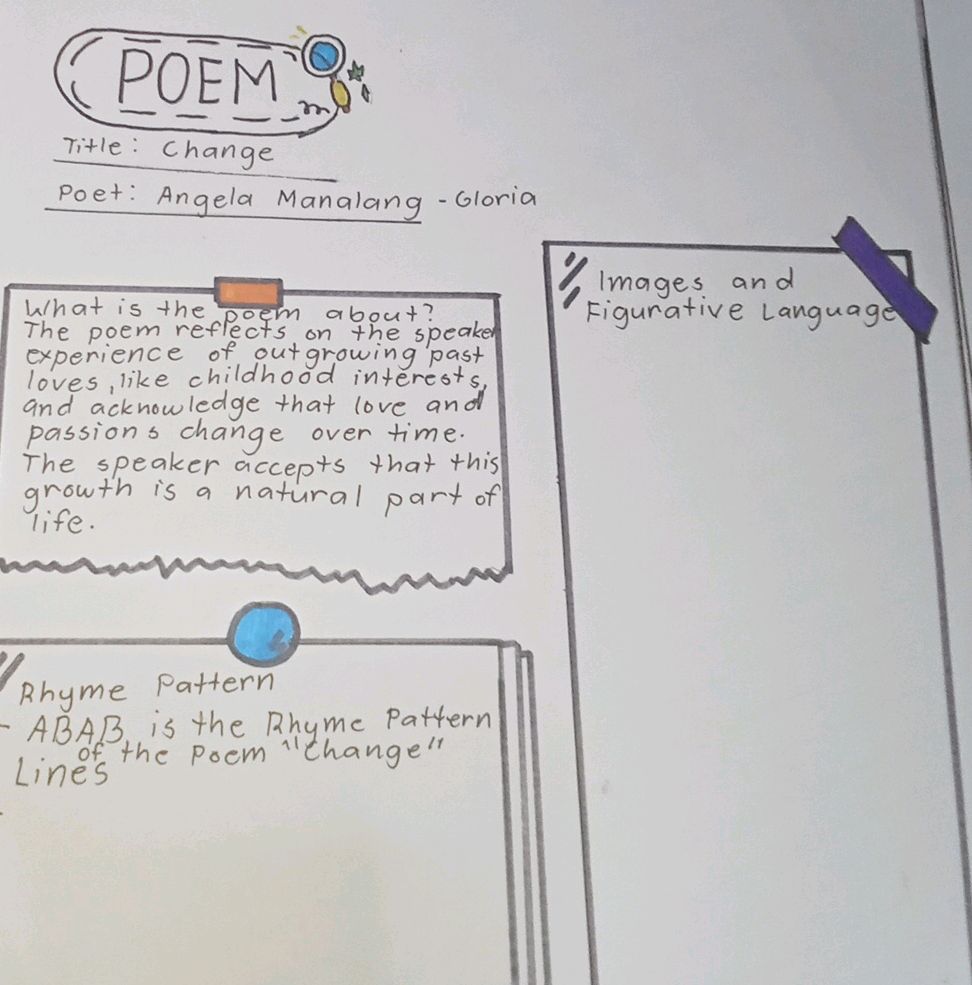 POEM
Title: Change
Poet: Angela Manalang - Gloria
What is the poem about?
The poem reflects on the speaker
experience of outgrowing past
loves, like childhood interests,
and acknowledge that love and
passions change over time.
The speaker accepts that this
growth is a natural part of
life.
Rhyme Pattern
- ABAB is the Rhyme Pattern
of the Poem "Change"
Lines
Images and
Figurative Language